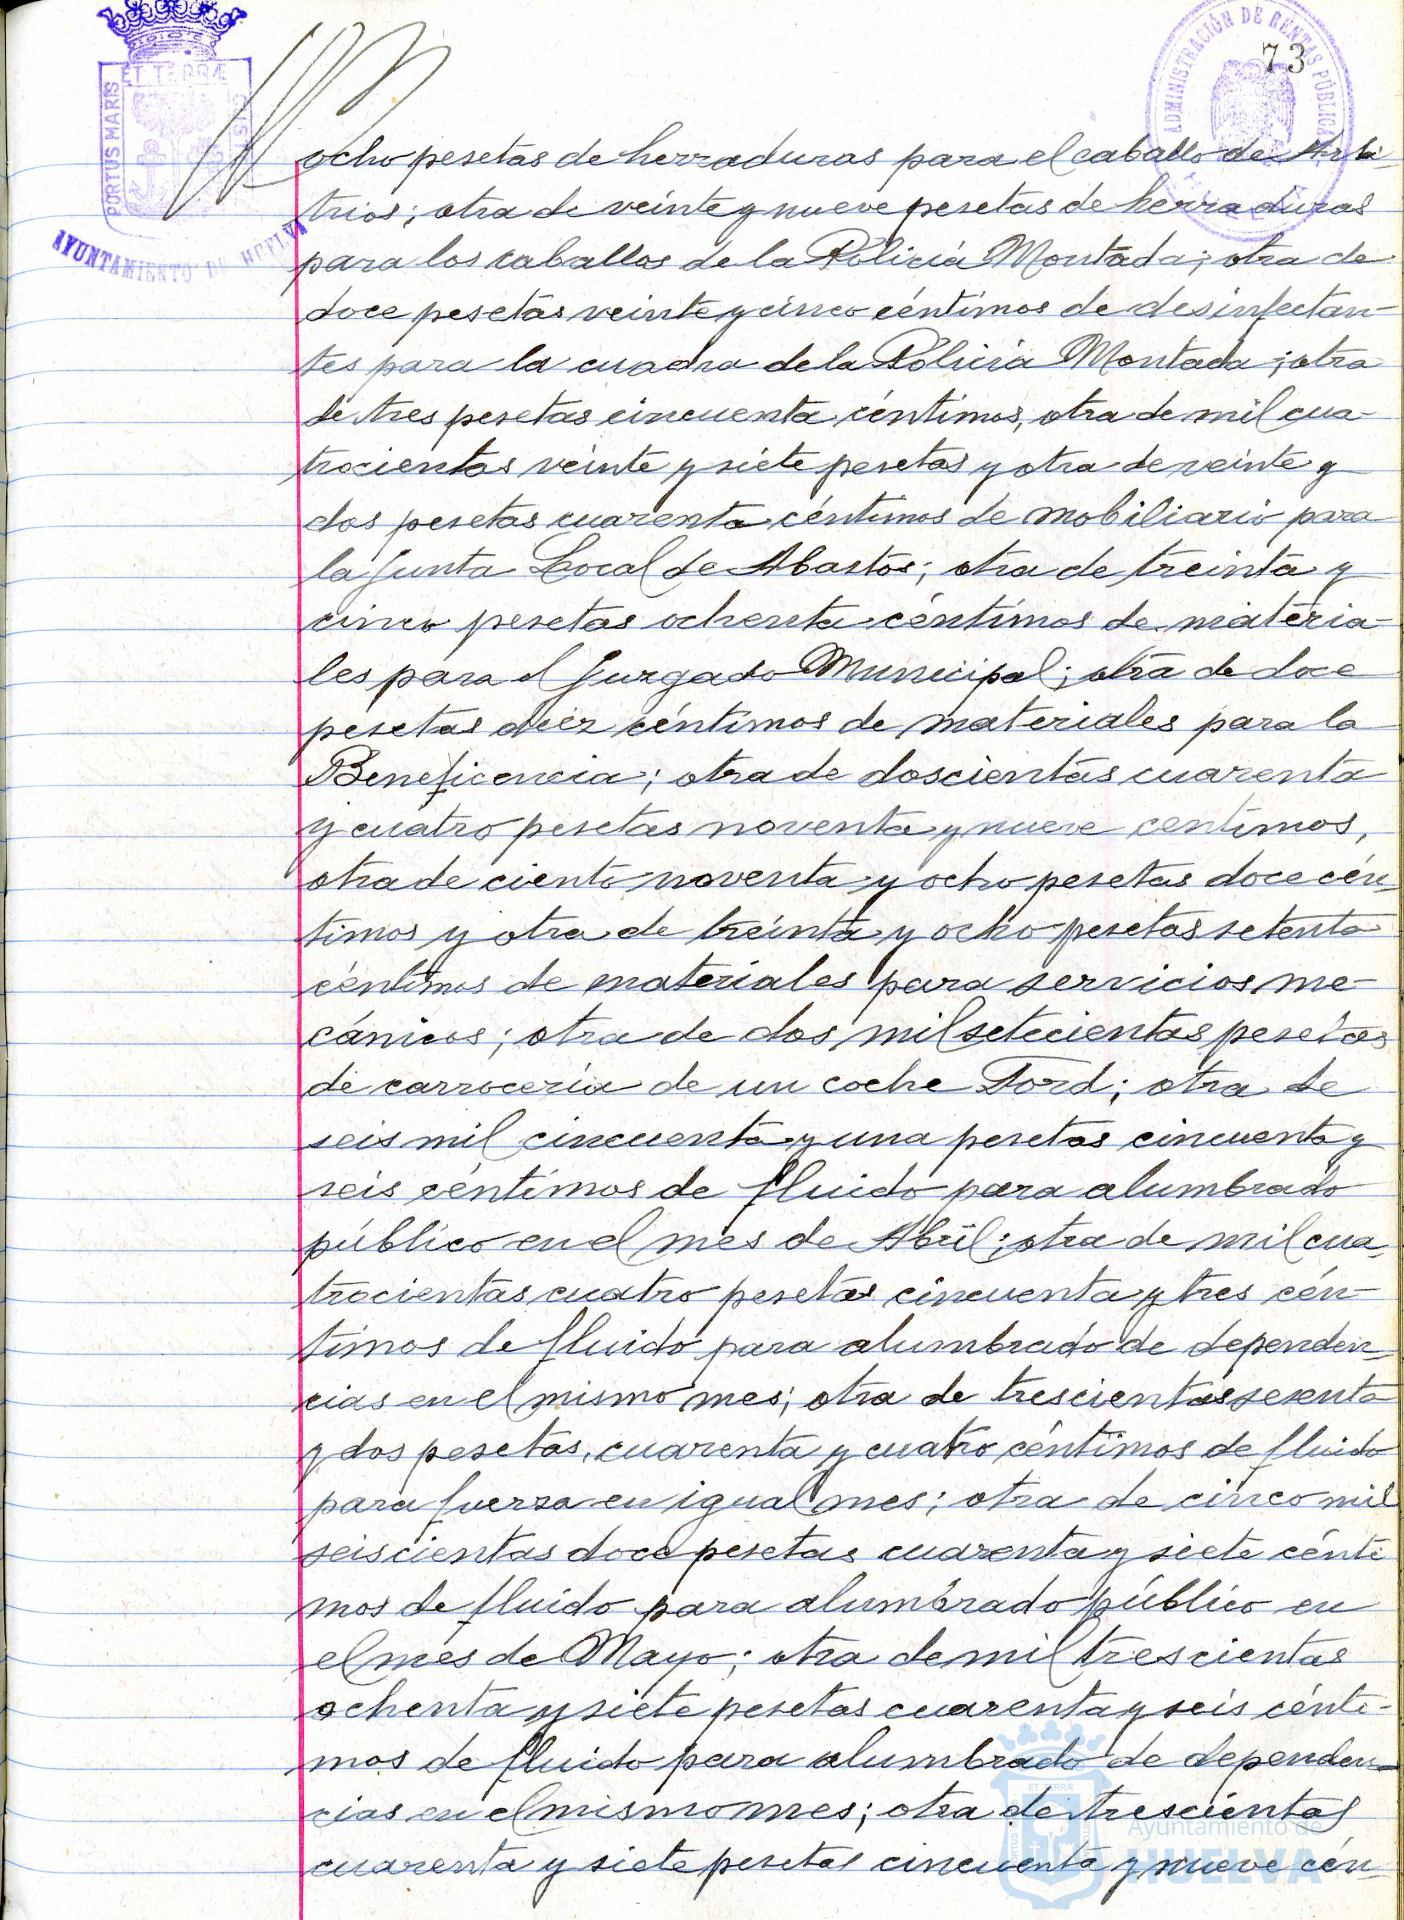 73
ET TERRÆ
PORTUS MARIS
CUSTODIA
AYUNTAMIENTO DE HUELVA
ADMINISTRACIÓN DE RENTAS PÚBLICAS
ocho pesetas de herraduras para el caballo de Arbi-
trios; otra de veinte y nueve pesetas de herraduras
para los caballos de la Policía Montada; otra de
doce pesetas veinte y cinco céntimos de desinfectan-
tes para la cuadra de la Policía Montada; otra
de tres pesetas cincuenta céntimos, otra de mil cua-
trocientas veinte y siete pesetas y otra de veinte y
dos pesetas cuarenta céntimos de mobiliario para
la Junta Local de Abastos; otra de treinta y
cinco pesetas ochenta céntimos de materia-
les para el Juzgado Municipal; otra de doce
pesetas diez céntimos de materiales para la
Beneficencia; otra de doscientas cuarenta
y cuatro pesetas noventa y nueve centimos,
otra de ciento noventa y ocho pesetas doce cén-
timos y otra de treinta y ocho pesetas setenta
céntimos de materiales para servicios me-
cánicos; otra de dos mil setecientas pesetas
de carrocería de un coche Ford; otra de
seis mil cincuenta y una pesetas cincuenta y
seis céntimos de fluido para alumbrado
público en el mes de Abril; otra de mil cua-
trocientas cuatro pesetas cincuenta y tres cén-
timos de fluido para alumbrado de dependen-
cias en el mismo mes; otra de trescientas sesenta
y dos pesetas, cuarenta y cuatro céntimos de fluido
para fuerza en igual mes; otra de cinco mil
seiscientas doce pesetas cuarenta y siete cénti
mos de fluido para alumbrado público en
el mes de Mayo; otra de mil trescientas
ochenta y siete pesetas cuarenta y seis cénti-
mos de fluido para alumbrado de dependen-
cias en el mismo mes; otra de trescientas
cuarenta y siete pesetas cincuenta y nueve cén-
ET TERRÆ
Ayuntamiento de
HUELVA